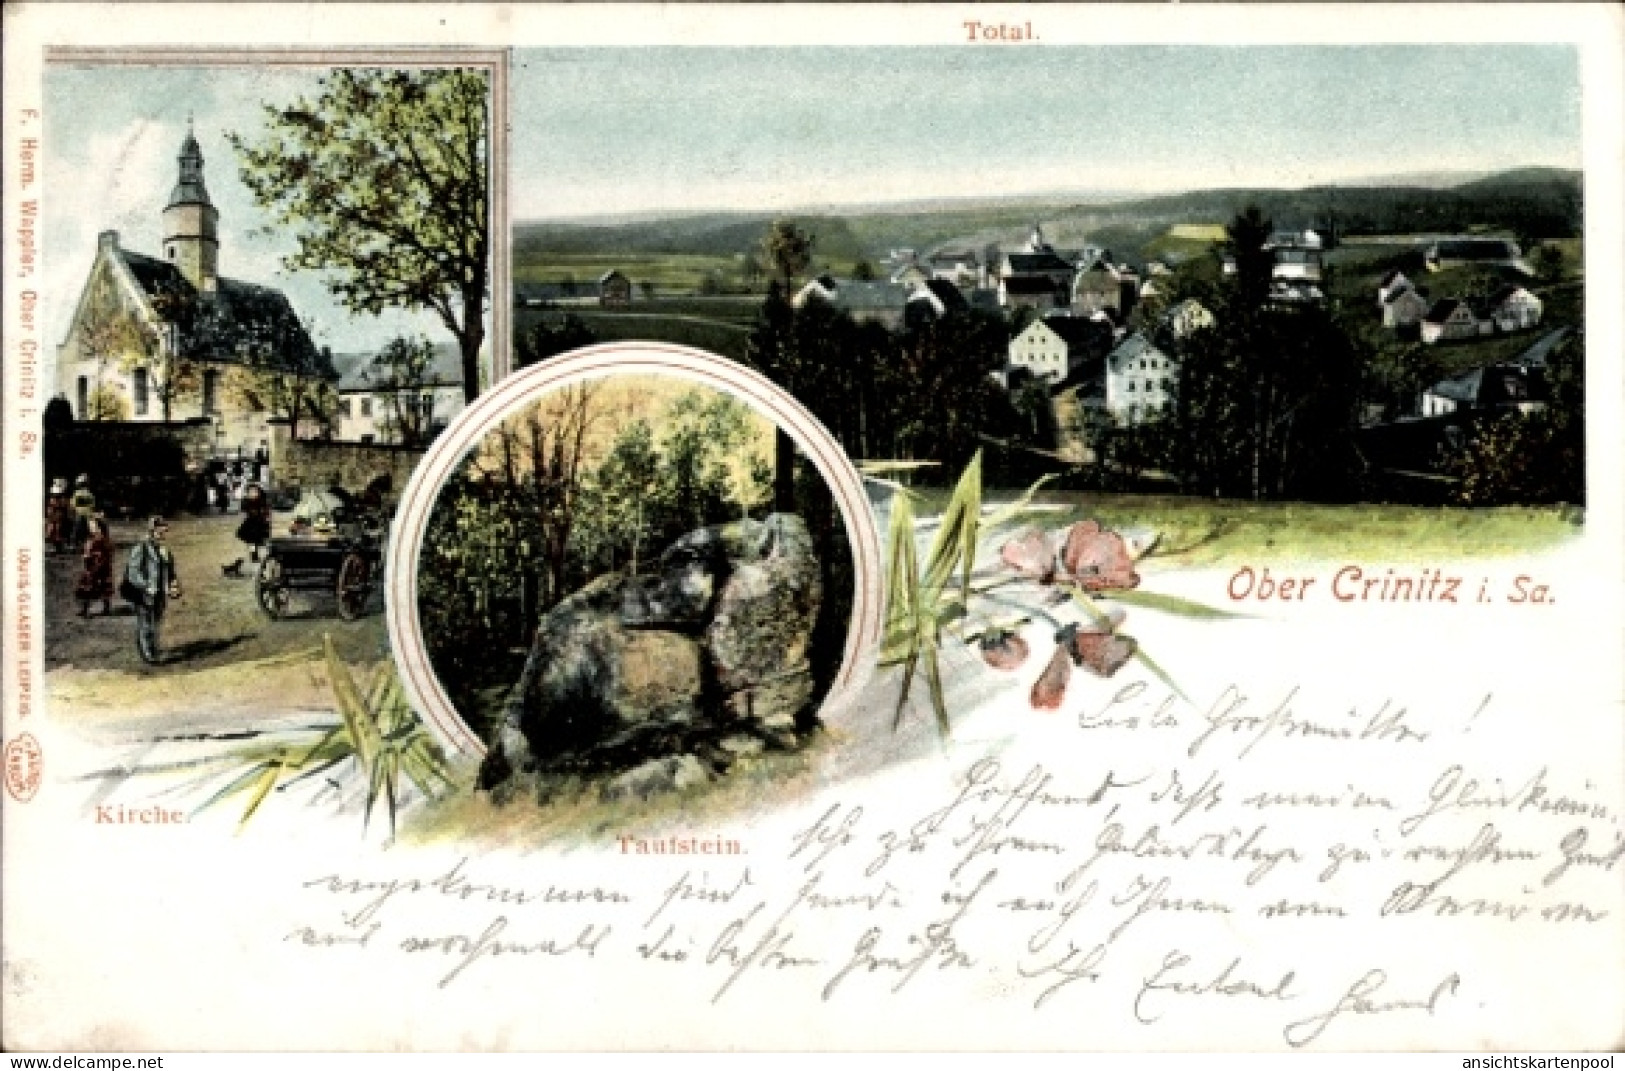 Total.
F. Herm. Wappler, Ober Crinitz i. Sa.
LOUIS GLASER LEIPZIG.
Kirche.
Taufstein.
Ober Crinitz i. Sa.
Liebe Großmutter!
Hoffend, daß meine Glückwün-
sche zu Ihrem Geburtstage zur rechten Zeit
angekommen sind, sende ich auch Ihnen vom Manöver
aus nochmals die besten Grüße. Ihr Enkel Hans.
delcampe.net
ansichtskartenpool